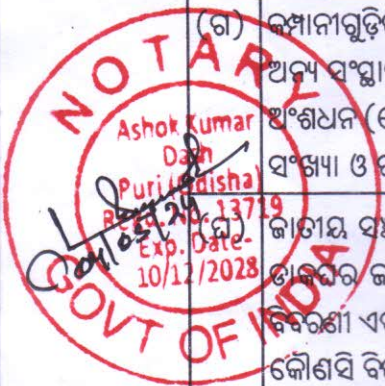 NOTARY
Ashok Kumar
Dash
Puri (Odisha)
Regd. No. 13719
Exp. Date-
10/12/2028
GOVT OF INDIA
(ଗ) କମ୍ପାନୀଗୁଡ଼ି
ଅନ୍ୟ ସଂସ୍ଥା
ଅଂଶଧନ (
ସଂଖ୍ୟା ଓ
(ଘ) ଜାତୀୟ
ଡାକଘର
ବିବରଣୀ
କୌଣସି